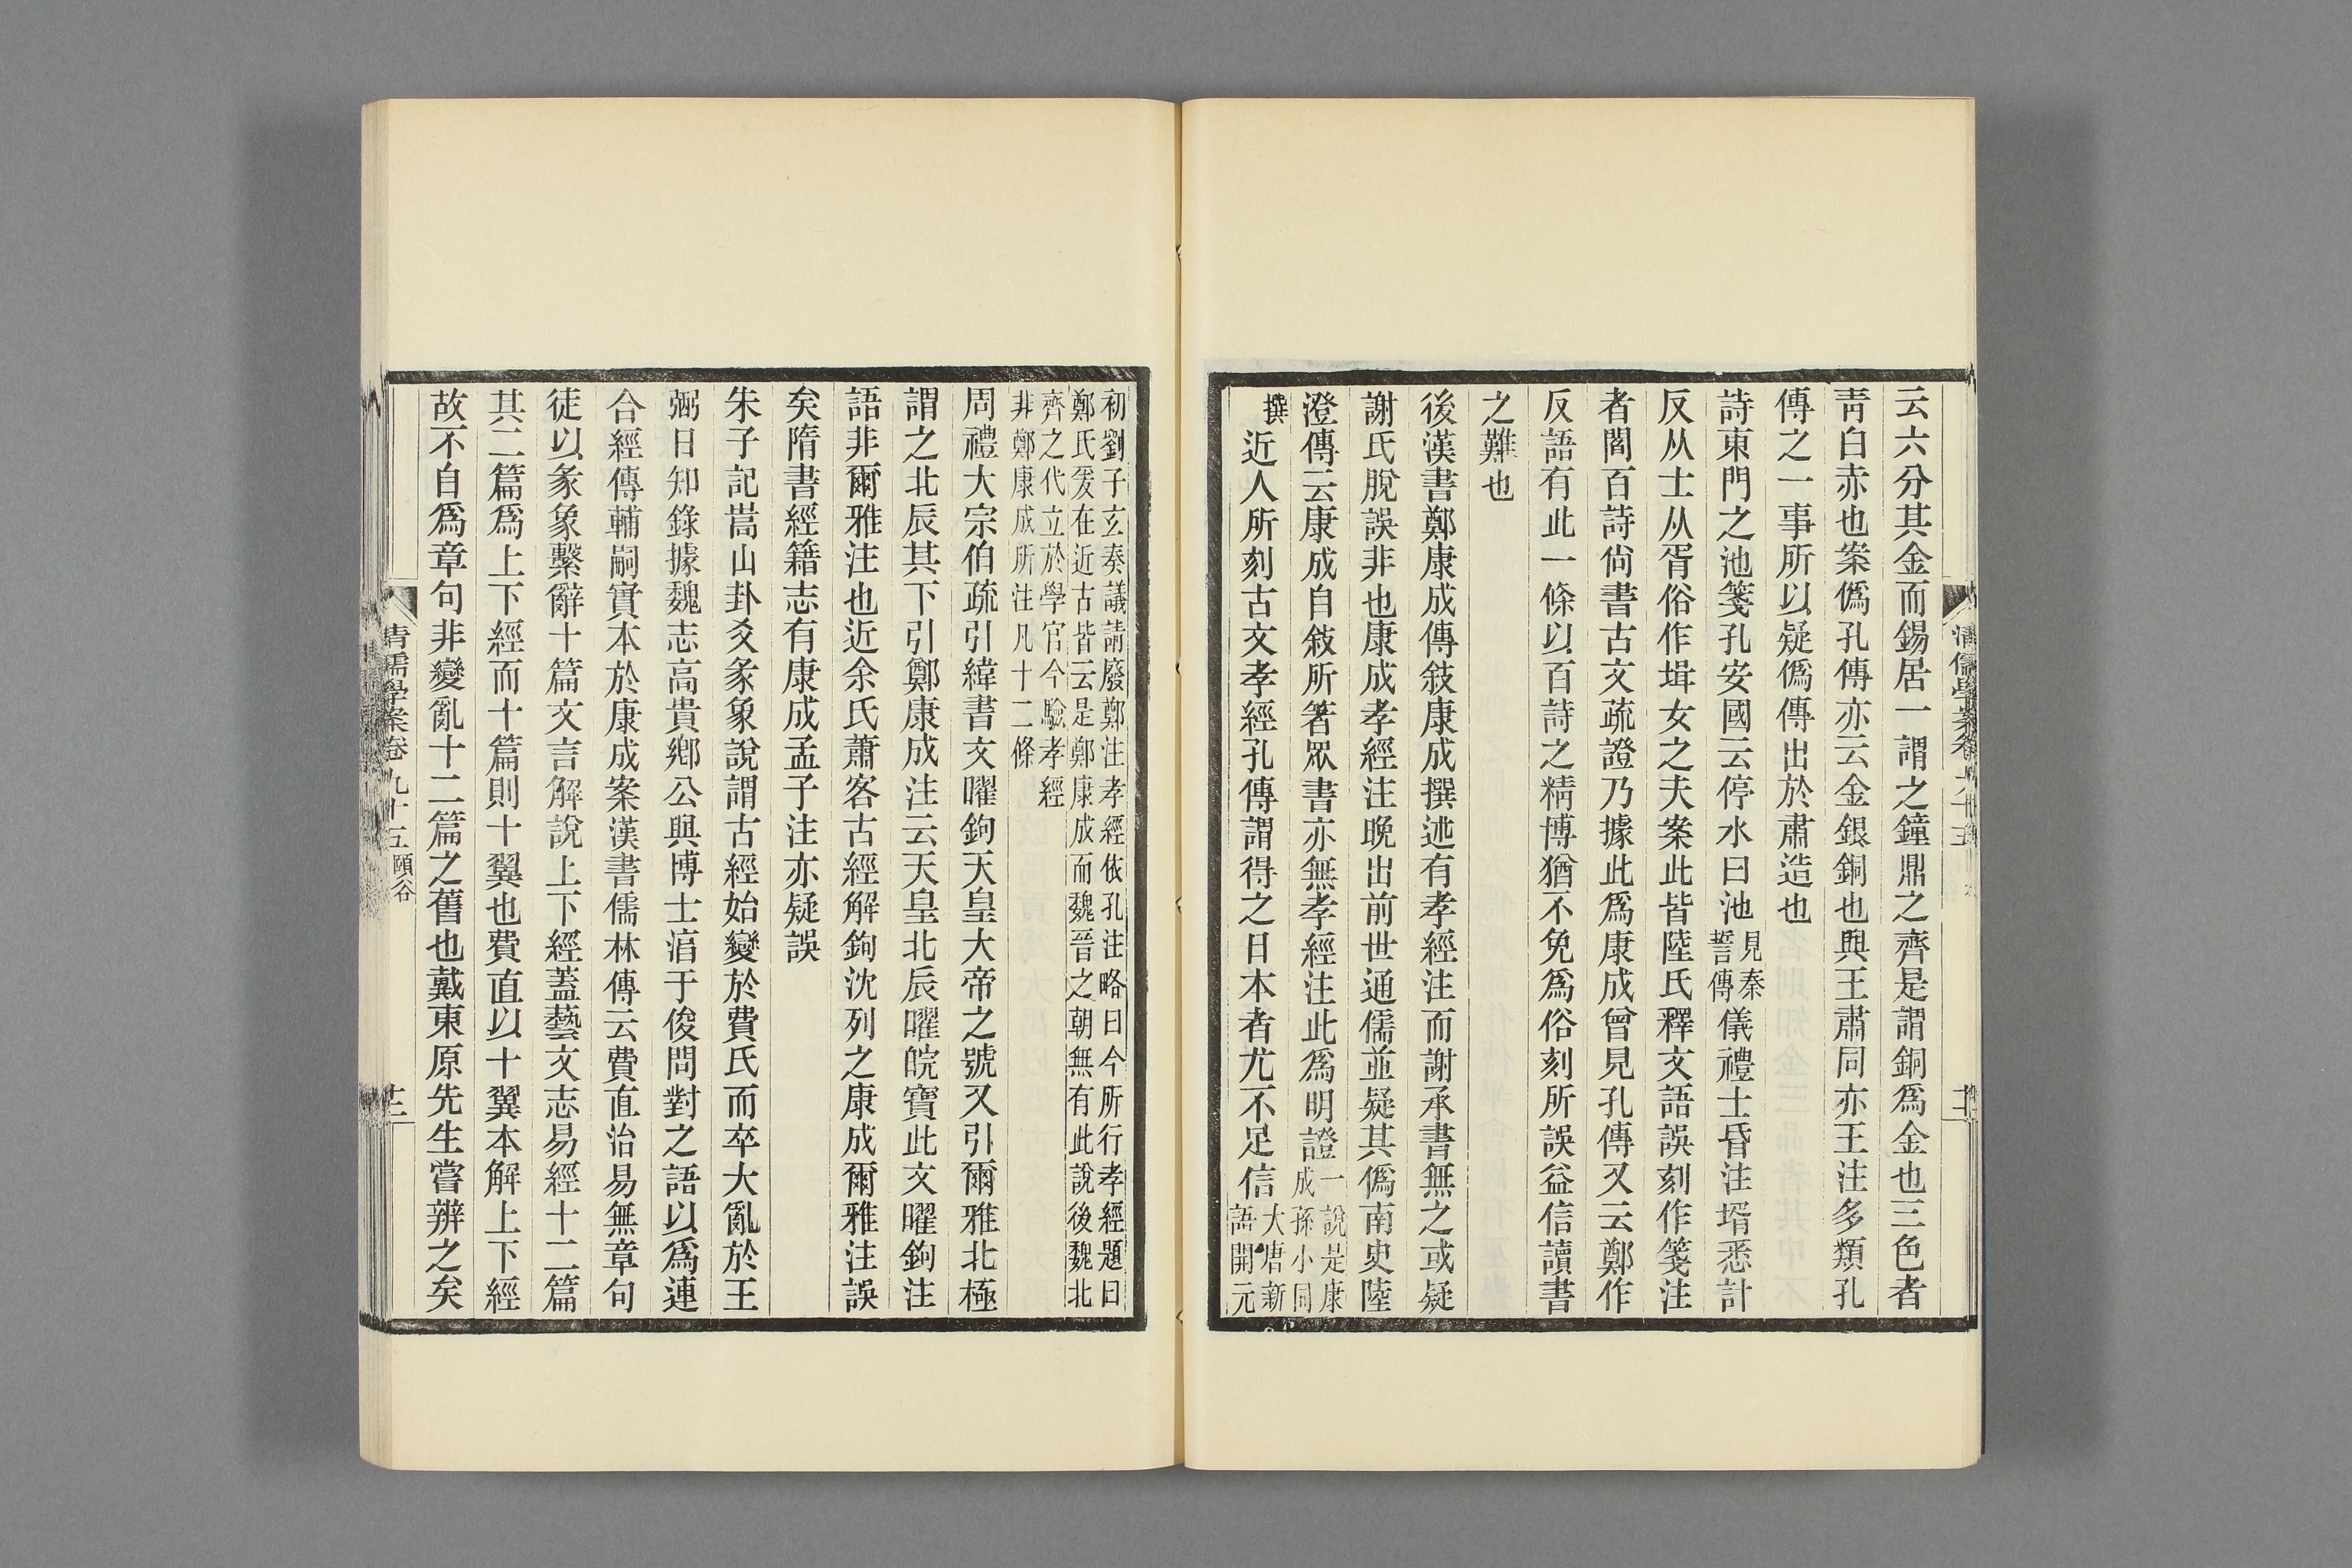 云六分其金而錫居一謂之鐘鼎之齊是謂銅爲金也三色者
靑白赤也案僞孔傳亦云金銀銅也與王肅同亦王注多類孔
傳之一事所以疑僞傳出於肅造也
詩東門之池箋孔安國云停水曰池見秦誓傳儀禮士昏注壻悉計
反从士从胥俗作壻女之夫案此皆陸氏釋文語誤刻作箋注
者閻百詩尙書古文疏證乃據此爲康成曾見孔傳又云鄭作
反語有此一條以百詩之精博猶不免爲俗刻所誤益信讀書
之難也
後漢書鄭康成傳敍康成撰述有孝經注而謝承書無之或疑
謝氏脫誤非也康成孝經注晚出前世通儒並疑其僞南史陸
澄傳云康成自敍所箸眾書亦無孝經注此爲明證一說是康成孫小同
撰近人所刻古文孝經孔傳謂得之日本者尤不足信大唐新語開元
初劉子玄奏議請廢鄭注孝經依孔注略曰今所行孝經題曰
鄭氏爰在近古皆云是鄭康成而魏晉之朝無有此說後魏北
齊之代立於學官今驗孝經
非鄭康成所注凡十二條
周禮大宗伯疏引緯書文曜鉤天皇大帝之號又引爾雅北極
謂之北辰其下引鄭康成注云天皇北辰曜皖寶此文曜鉤注
語非爾雅注也近余氏蕭客古經解鉤沈列之康成爾雅注誤
矣隋書經籍志有康成孟子注亦疑誤
朱子記嵩山卦爻彖象說謂古經始變於費氏而卒大亂於王
弼日知錄據魏志高貴鄉公與博士淯于俊問對之語以爲連
合經傳輔嗣實本於康成案漢書儒林傳云費直治易無章句
徒以彖象繫辭十篇文言解說上下經蓋藝文志易經十二篇
其二篇爲上下經而十篇則十翼也費直以十翼本解上下經
故不自爲章句非變亂十二篇之舊也戴東原先生嘗辨之矣
清儒學案卷九十五頤谷
十二